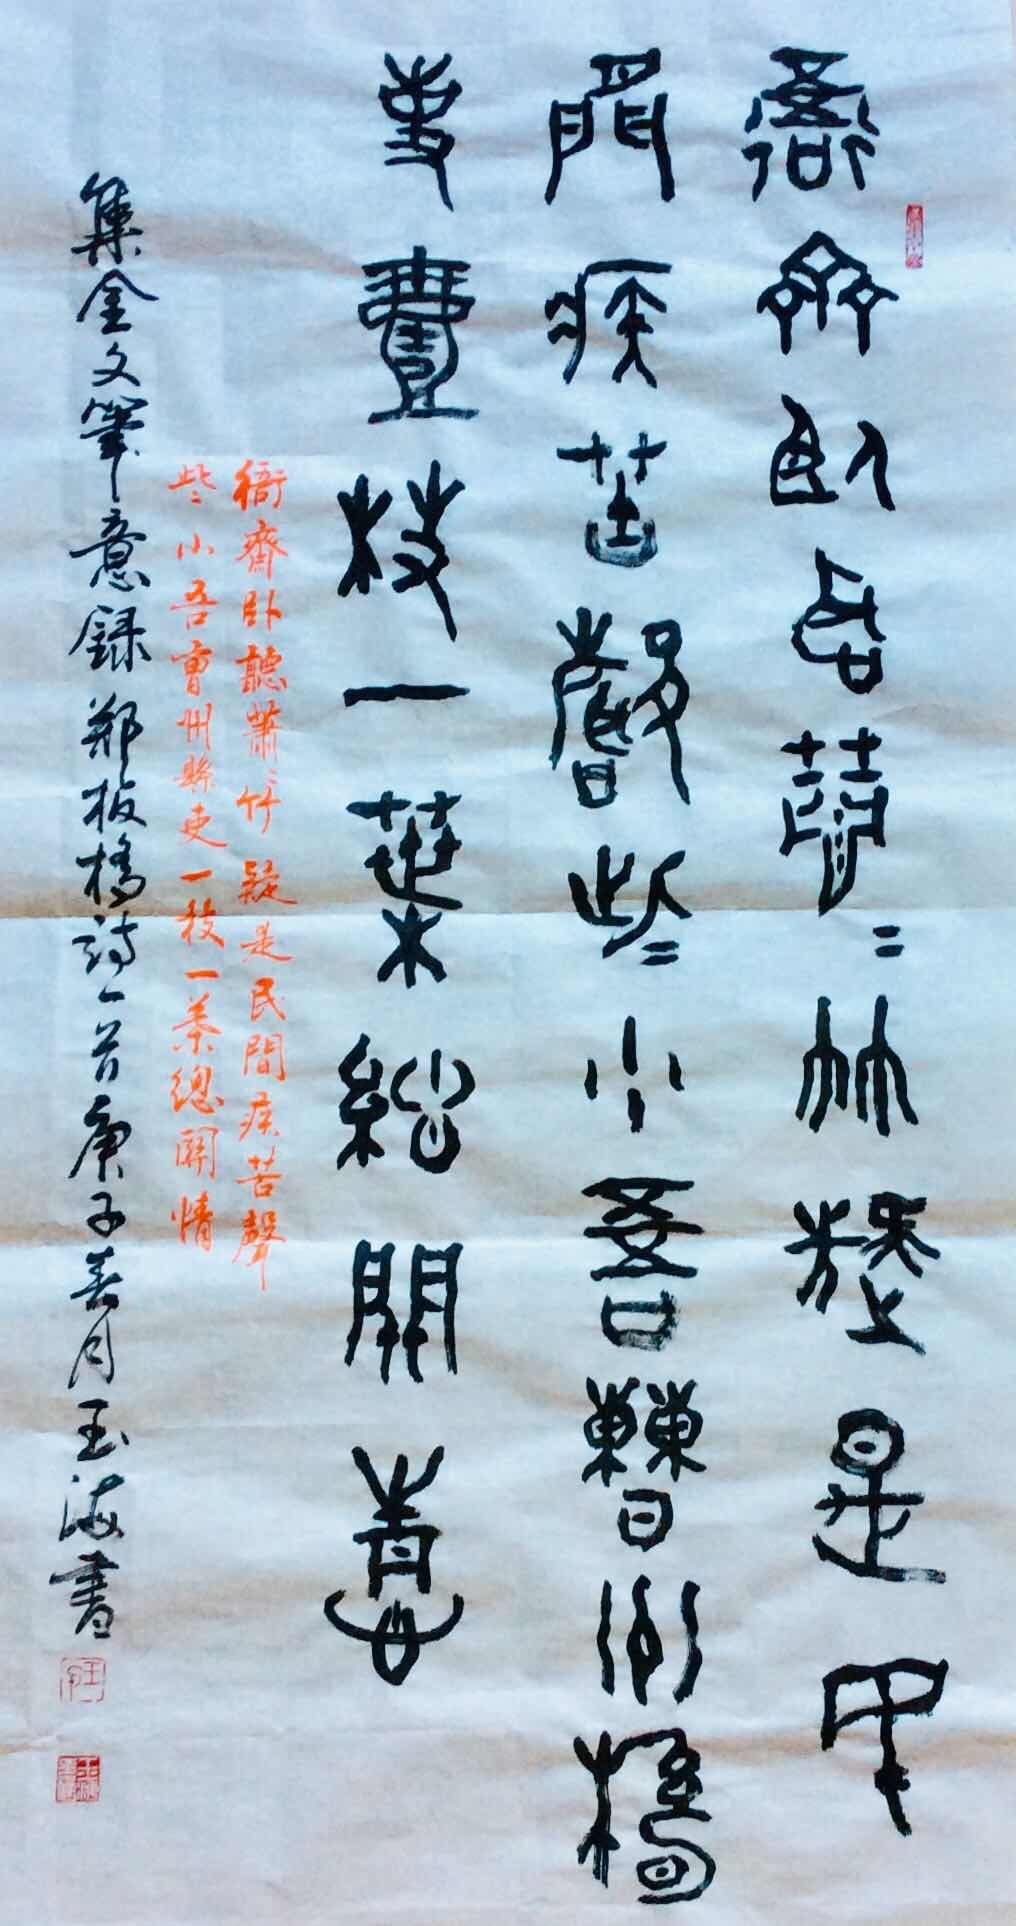 衙齋臥聽蕭〻竹疑是民
間疾苦聲些〻小吾曹州縣
吏壹枝一葉總關情
衙齋卧聽蕭〻竹疑是民間疾苦聲
些〻小吾曹州縣吏一枝一葉總關情
集金文筆意録鄭板橋詩一首庚子春月玉海書